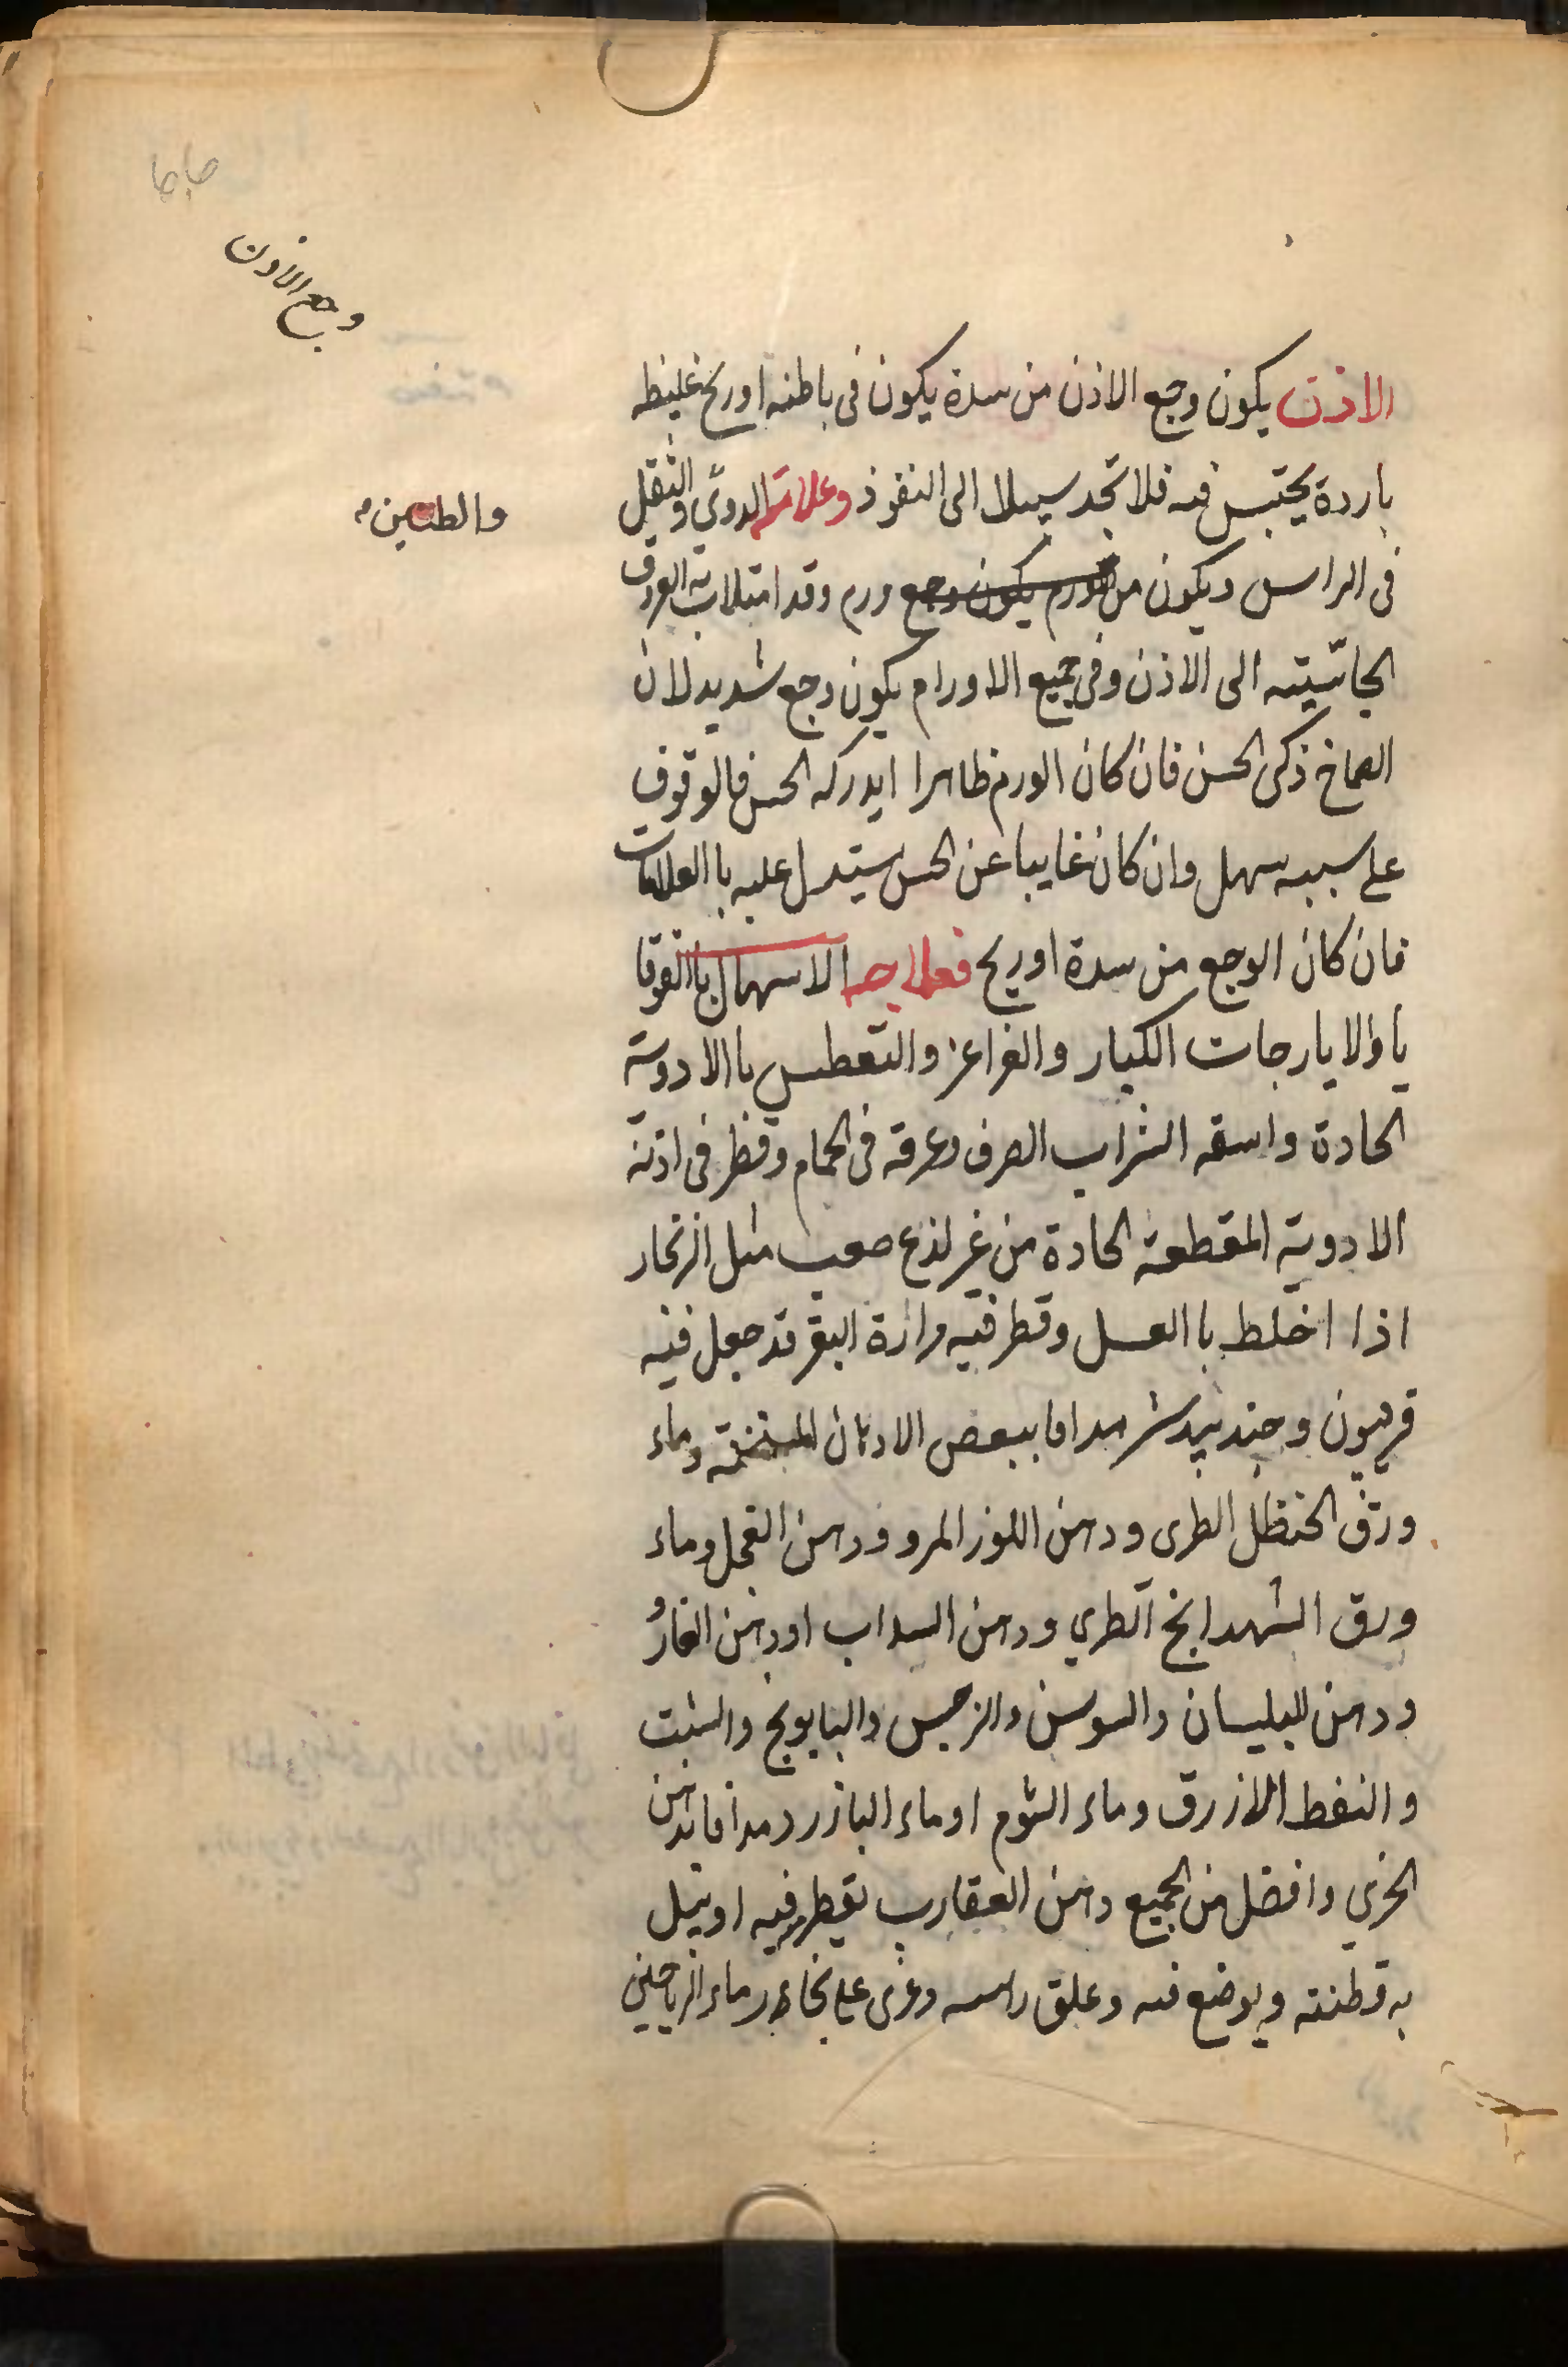 وجع الاذن
الاذن يكون وجع الاذن من سدة يكون فى باطنه او ريح غليظه
باردة يحتبس فيه فلا تجد سبيلا الى النفوذ وعلامته الدوى والثقل
والطنين
فى الراس ويكون من الورم يكون وجع ورم وقد امتلات به العروق
الى الاذن وفى جميع الاورام يكون وجع شديد لان
الصماخ ذكى الحس فان كان الورم ظاهرا ايدركه الحس فالوقوف
على سببه سهل وان كان غايبا عن الحس ستدل عليه با العلامات
فان كان الوجع من سدة او ريح فعلاجه الاسهال با القوقا
يا والايارجات الكبار والغراغر والتعطس با الادوية
الحادة واسقه الشراب الصرف وعرقه فى الحمام وقطر فى اذنه
الادوية المقطعة الحادة من غير لذع صعب مثل الزنجار
اذا اخلط با العسل وقطر فيه مرارة البقر قد جعل فيه
فربيون وجندبيدستر مدافا ببعض الادهان المسخنة وماء
ورق الحنظل الطرى ودهن اللوز المر و ودهن الفجل وماء
ورق الشهدانج الطري ودهن السداب او دهن الغار
ودهن البليسان والسوسن والنرجس والبابونج والشبت
والنفط الازرق وماء الثوم او ماء البازرد مدافا بدهن
الخري وافضل من الجميع دهن العقارب يقطر فيه او يبل
به قطنته ويوضع فيه وعلق راسه وعرى على بخار ماء الرياحين